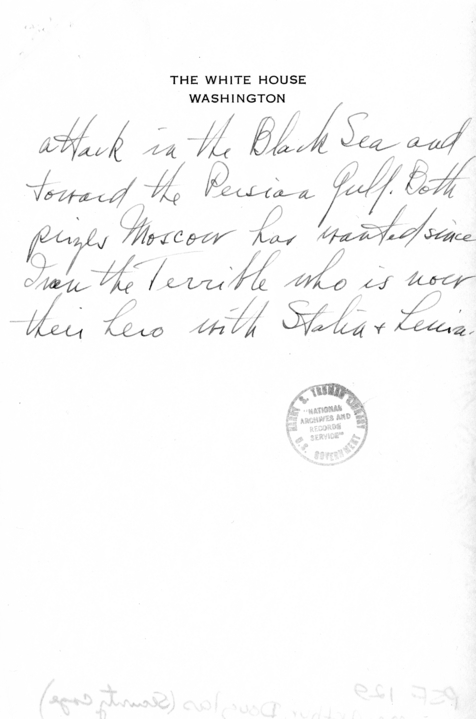 THE WHITE HOUSE
WASHINGTON
attack in the Black Sea and
toward the Persian Gulf. Both
prizes Moscow has wanted since
Ivan the Terrible who is now
their hero with Stalin + Lenin.
HARRY S. TRUMAN LIBRARY
"NATIONAL
ARCHIVES AND
RECORDS
SERVICE"
U.S. GOVERNMENT
PSF 129
(Security